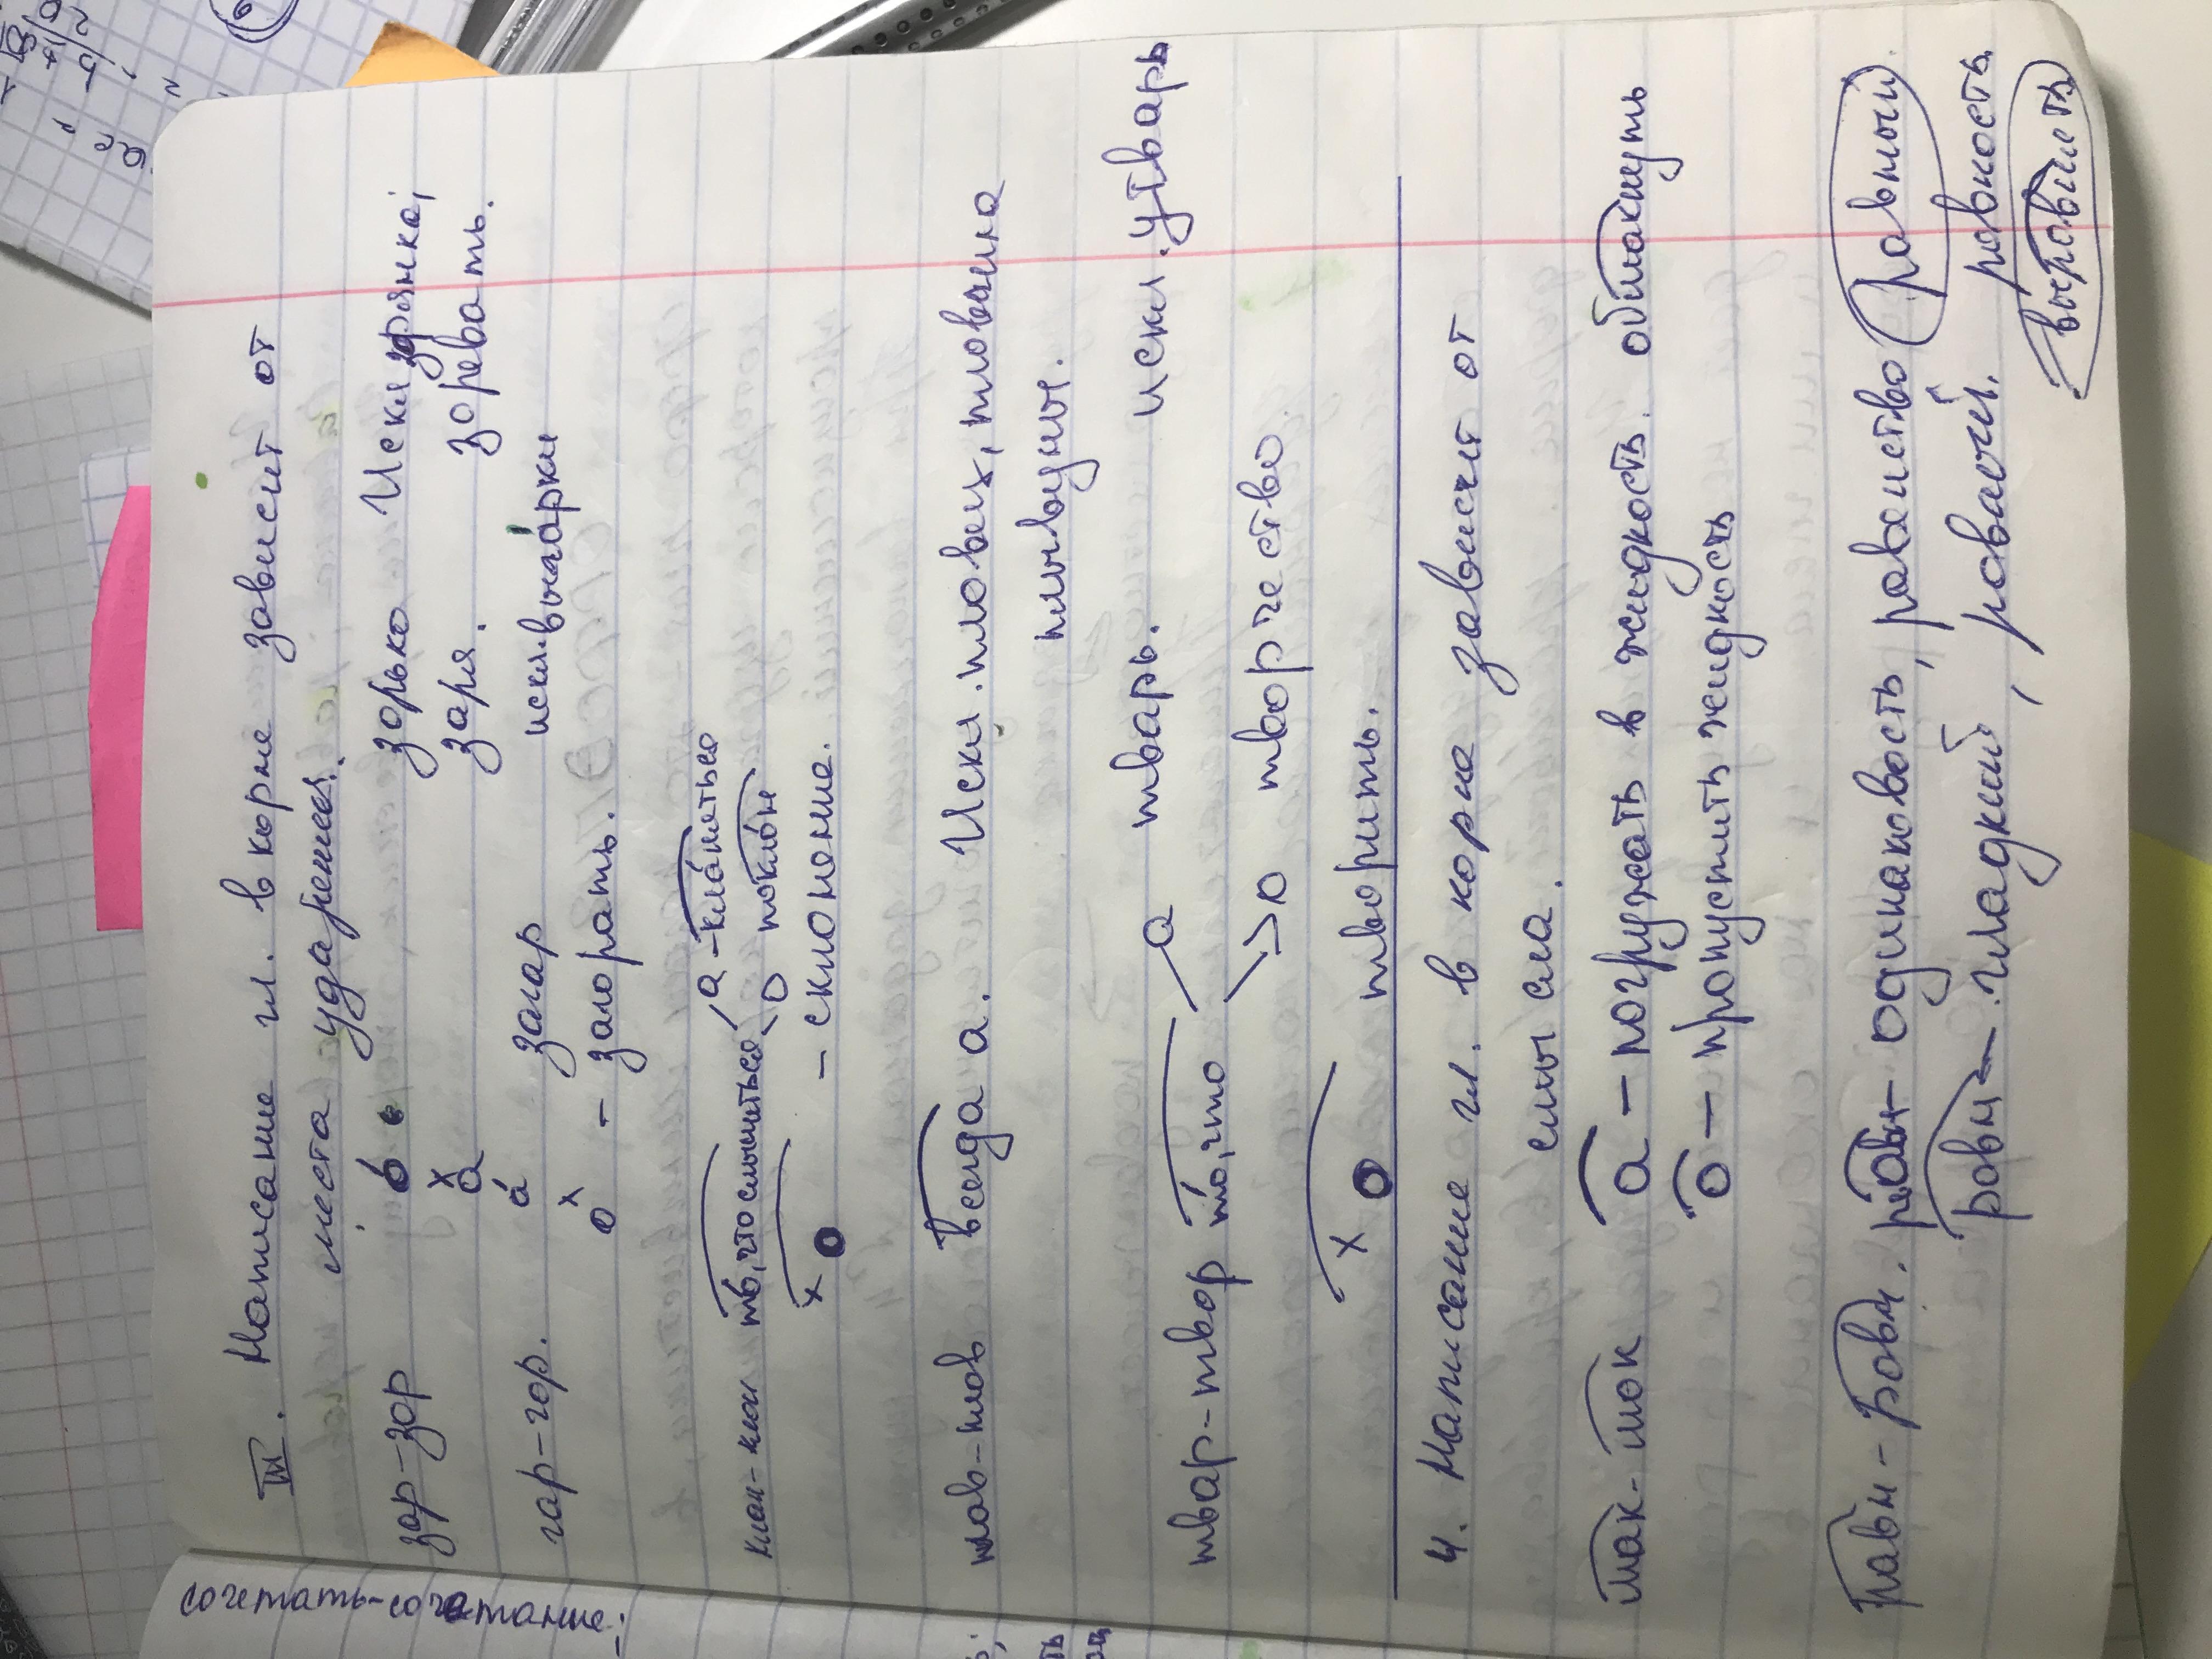 сочетать-сочетание;
III. Написание гл. в корне зависит от
места ударения.
зар-зор ó зорько Искл зорянка,
x а заря. зоревать.
гар-гор. á загар искл. выгарки
x о - загорать.
клан-клон то, что слышиться а - кланяться
о поклон
x о - склонение.
плав-плов всегда а. Искл. пловец, пловчиха
плывуны.
твар-твор то, что а тварь. искл. утварь
о творчество
x о творить.
4. Написание гл. в корне зависит от
смысла.
мак-мок а - погружать в жидкость. обмакнуть
о - пропустить жидкость
равн - ровн. равн - одинаковость, равенство равный.
ровн - гладкий, ровный. ровность
выровнять